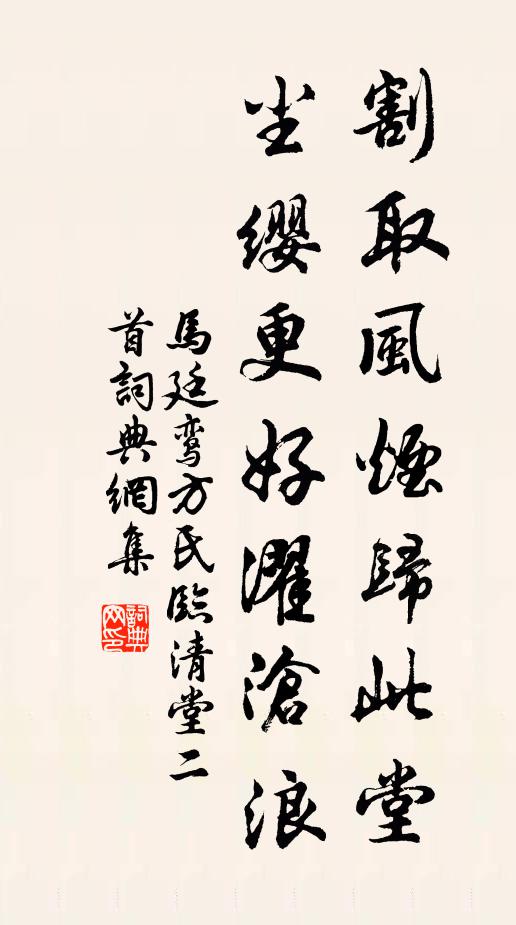 割取風煙歸此堂
尘缨更好濯滄浪
馬廷鸾方氏臨清堂二
首詞典網集
詞典
网印